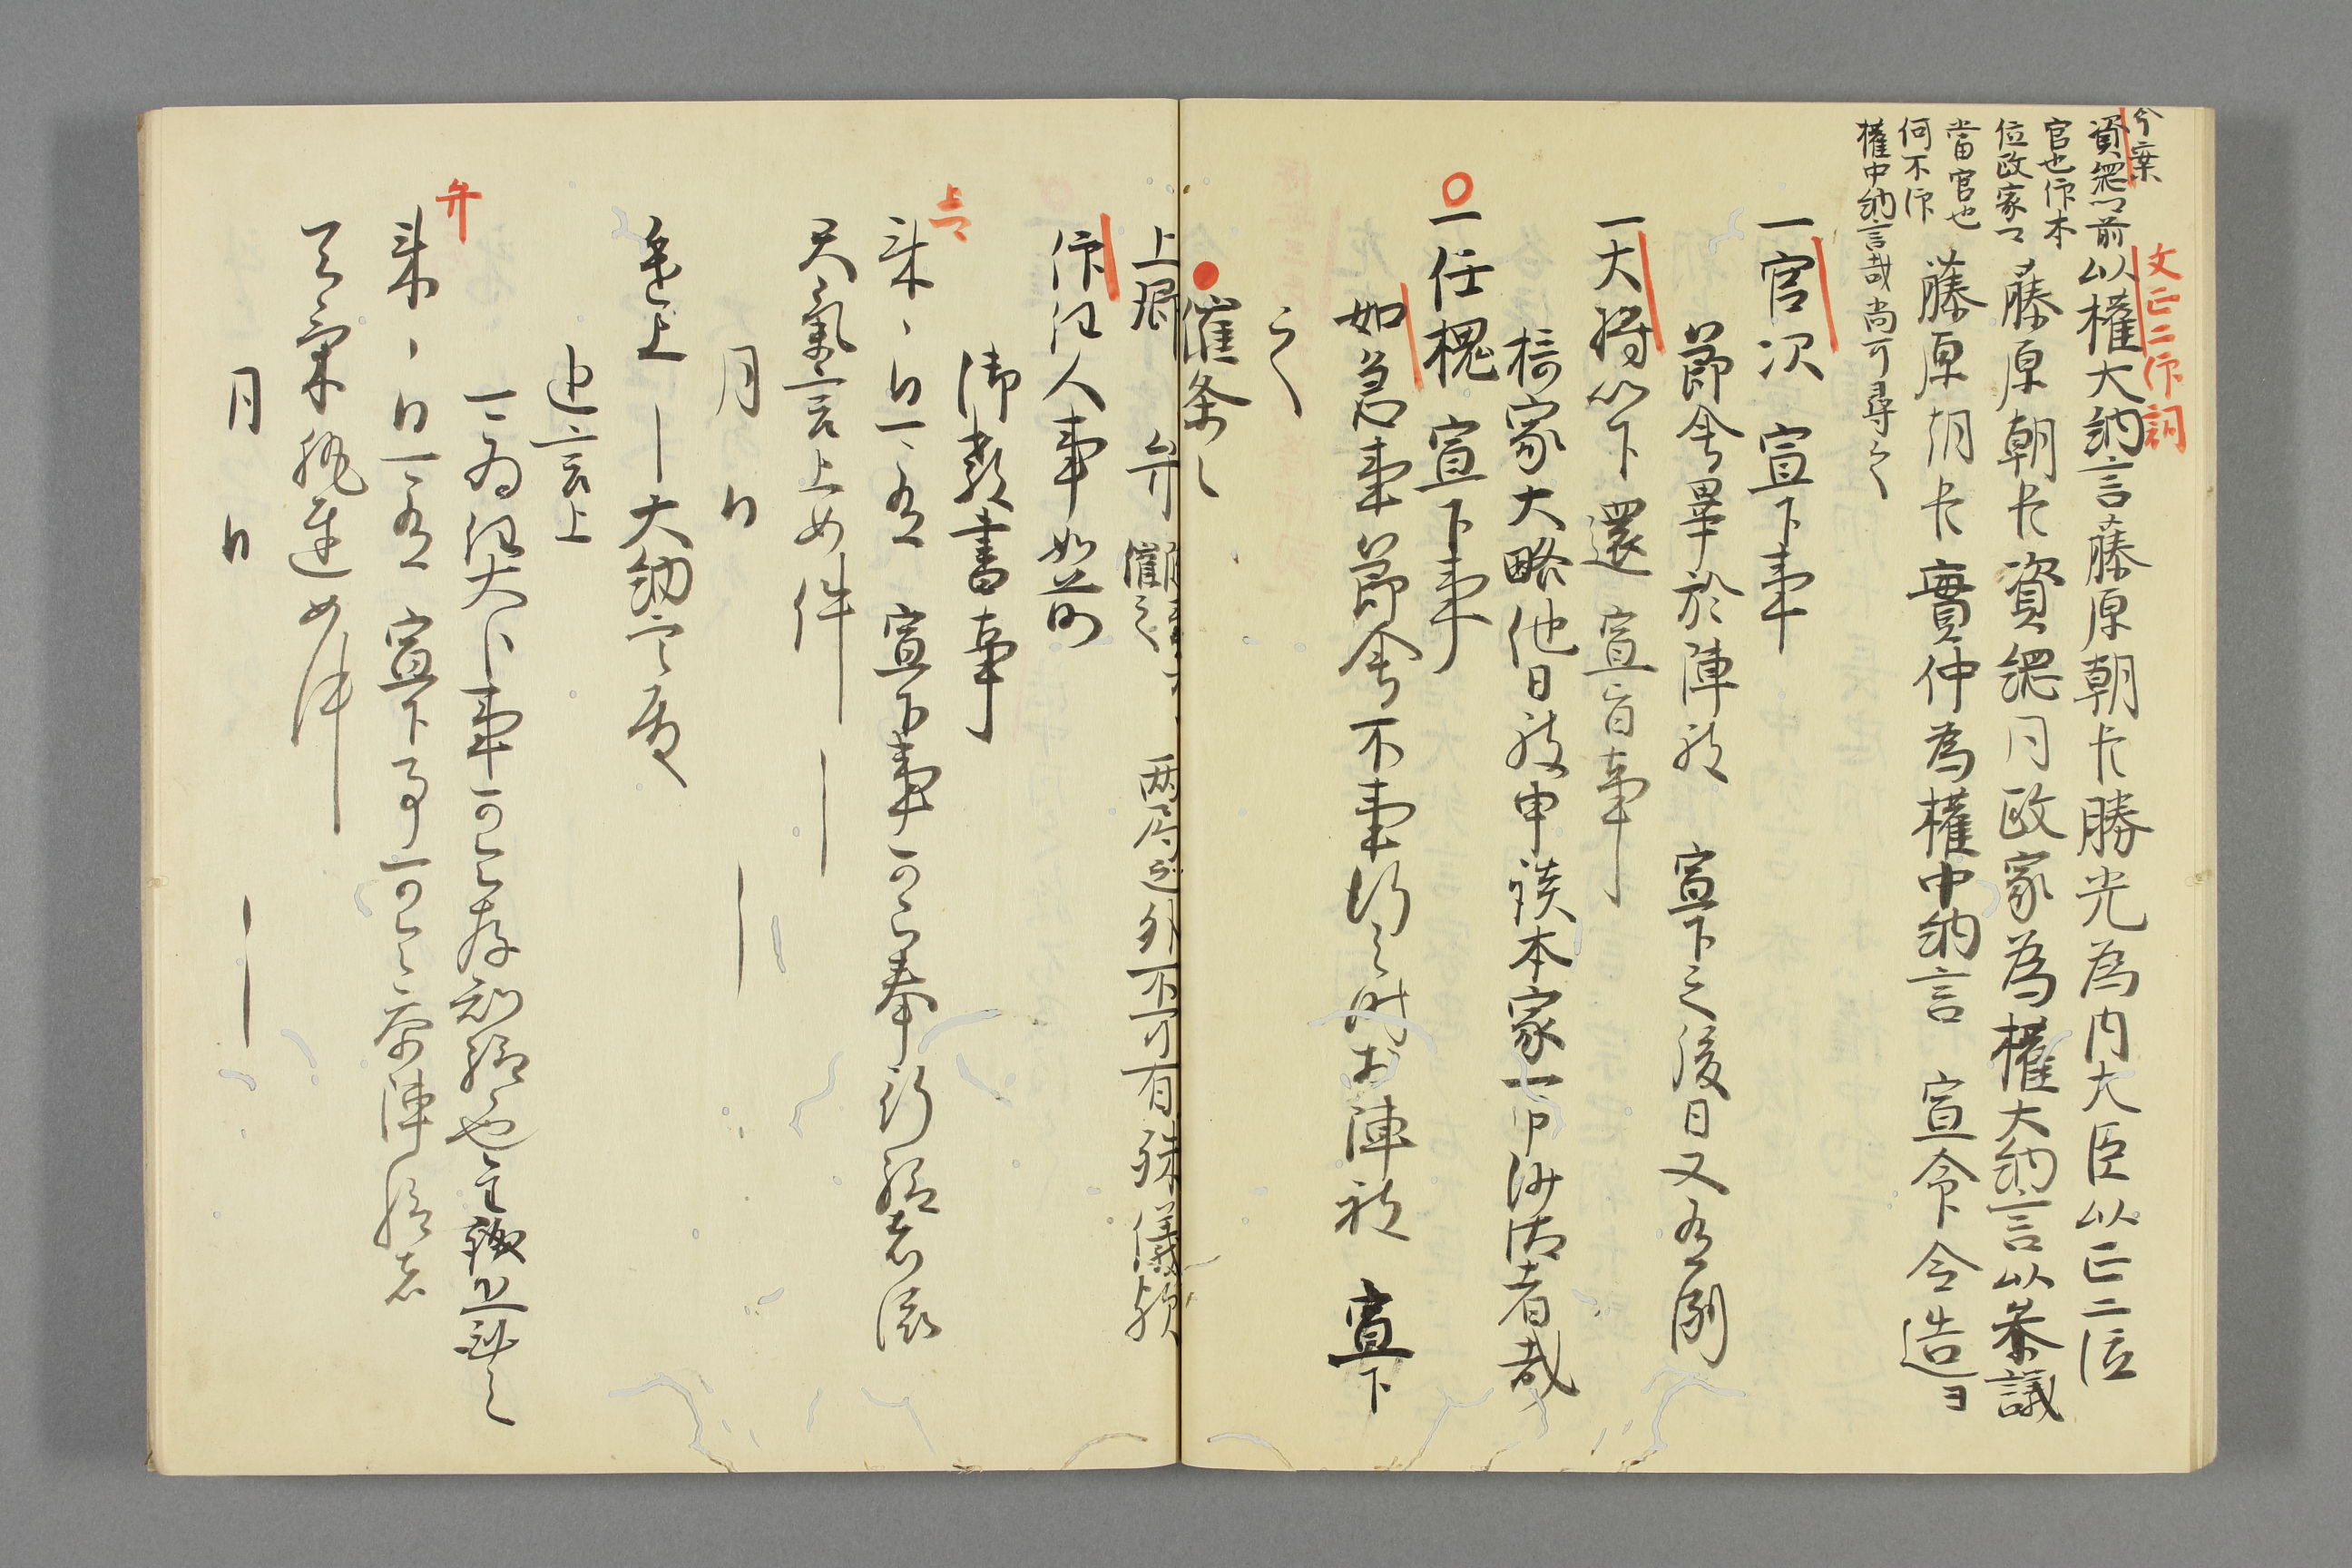 今案
資綱以前
官也作本
位政家一
當官也
何不作
權中納言哉尚可尋之
文正二作詞
以權大納言藤原朝臣勝光為内大臣以正二位
藤原朝臣資綱同政家為權大納言以参議
藤原朝臣實仲為權中納言 宣命令造ヨ
一官次 宣下事
節會畢於陣被 宣下之後日又有例
一大将以下還 宣旨事
槗家大略他日被申談本家一向沙汰者哉
一任槐 宣下事
如若事節會不事行之時於陣被 宣下
之
催条々
上卿 弁 催之 両局迄外不可有殊儀歟
作任人事如前
御教書事
上
来、日可有 宣下事可令奉行給者依
天氣言上如件
月 日
進上 大納言殿
追言上
可為任大臣事可令存知給也
弁
来、日可有 宣下事可令参陣給者
天氣執達如件
月 日